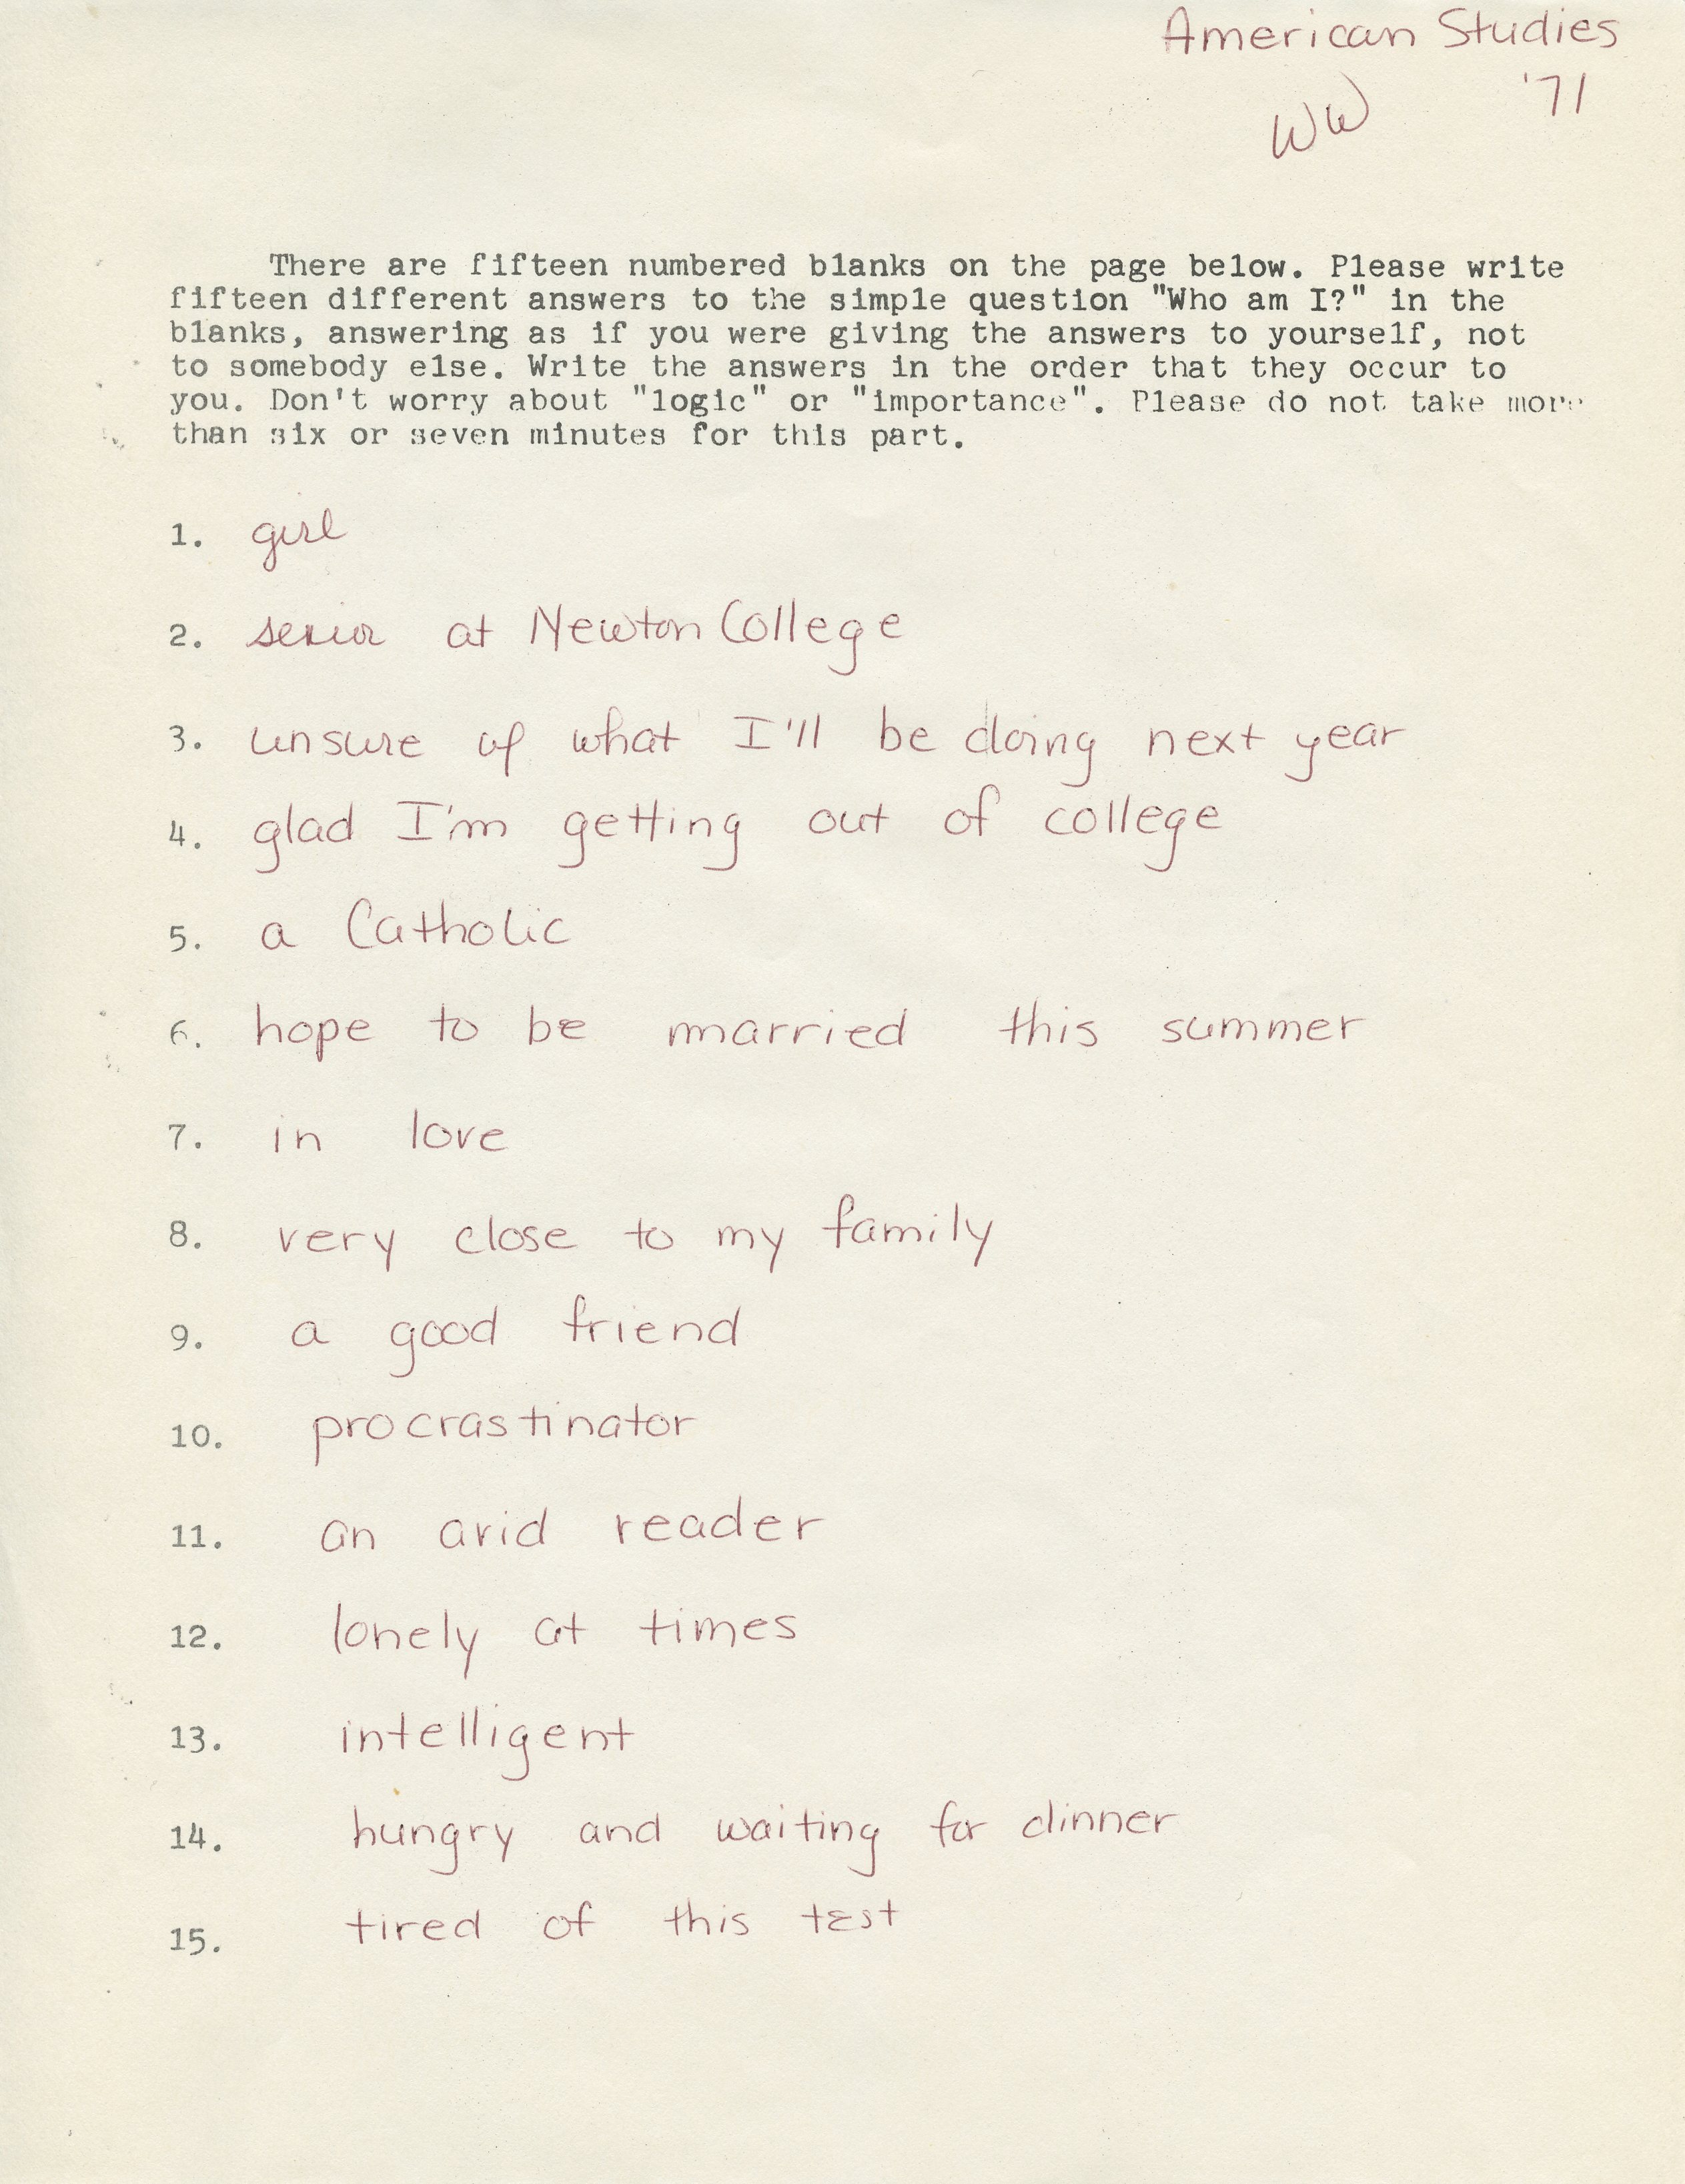 American Studies
WW '71
There are fifteen numbered blanks on the page below. Please write
fifteen different answers to the simple question "Who am I?" in the
blanks, answering as if you were giving the answers to yourself, not
to somebody else. Write the answers in the order that they occur to
you. Don't worry about "logic" or "importance". Please do not take more
than six or seven minutes for this part.
1. girl
2. senior at Newton College
3. unsure of what I'll be doing next year
4. glad I'm getting out of college
5. a Catholic
6. hope to be married this summer
7. in love
8. very close to my family
9. a good friend
10. procrastinator
11. an avid reader
12. lonely at times
13. intelligent
14. hungry and waiting for dinner
15. tired of this test